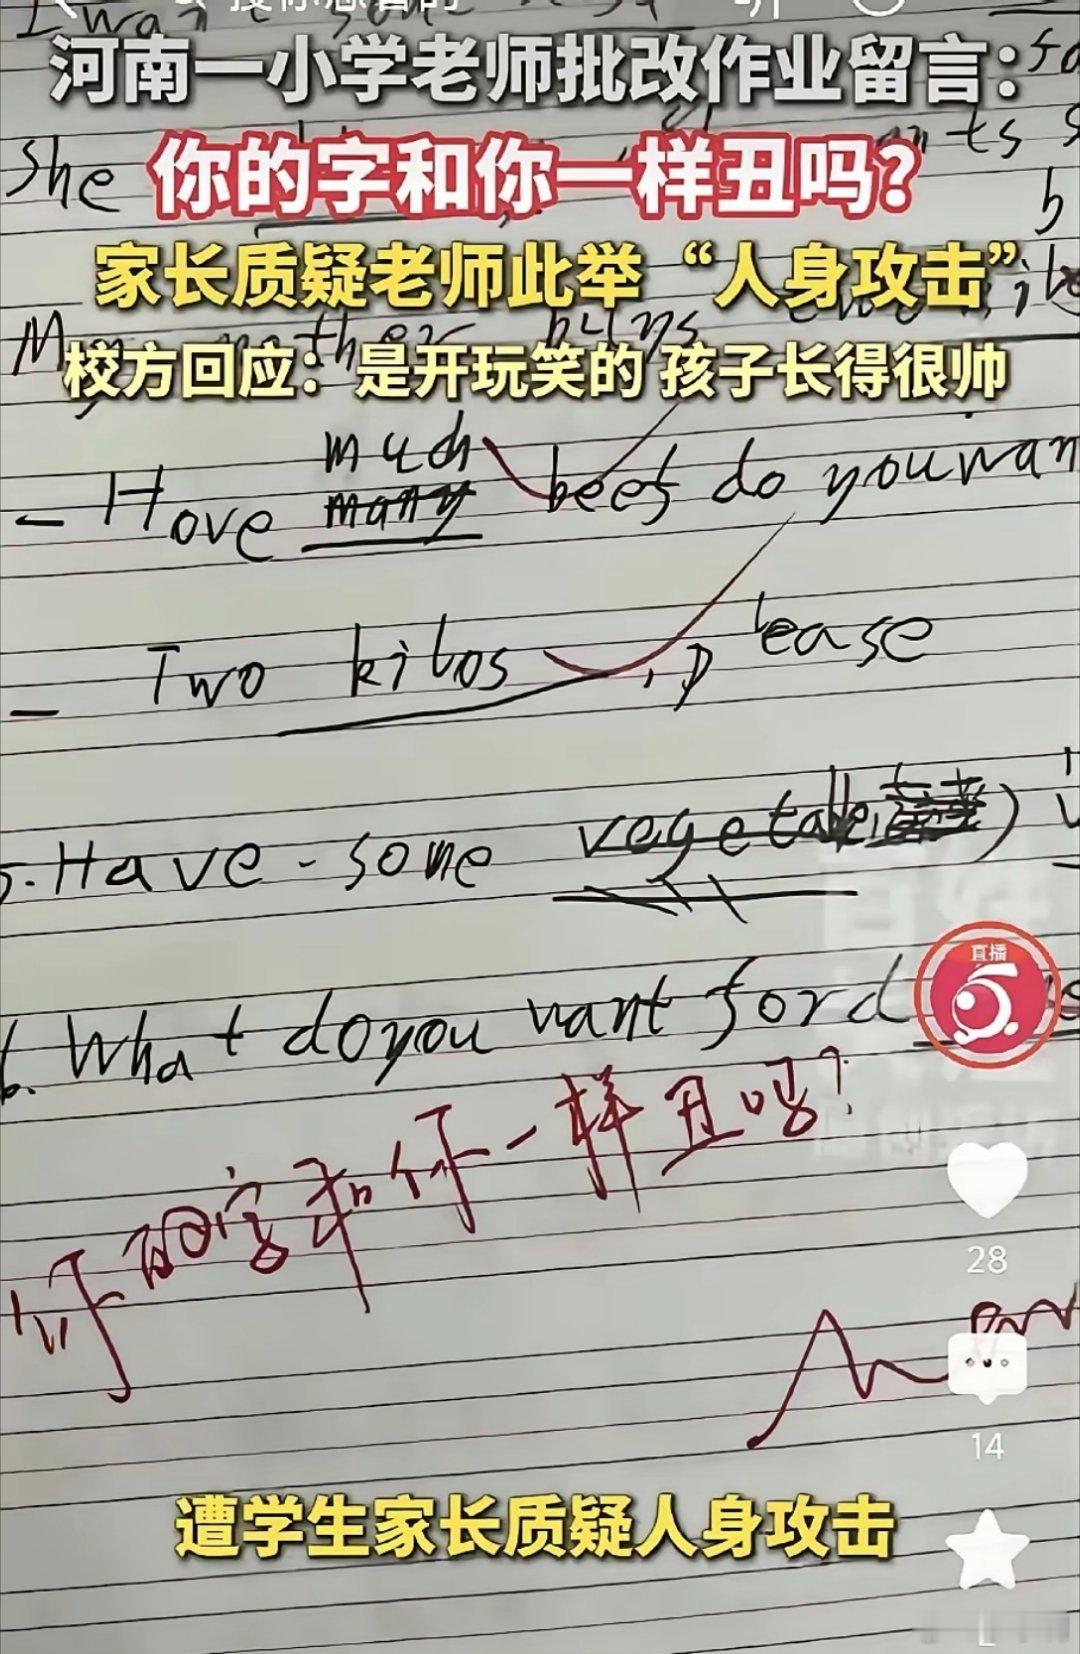 河南一小学老师批改作业留言：
你的字和你一样丑吗？
She
家长质疑老师此举“人身攻击”
My mother buys
校方回应：是开玩笑的 孩子长得很帅
much
- Hove many beef do you wan
- Two kilos , please
5. Have - some vegetable
6. What do you want for d
直播
你的字和你一样丑吗？
28
14
遭学生家长质疑人身攻击